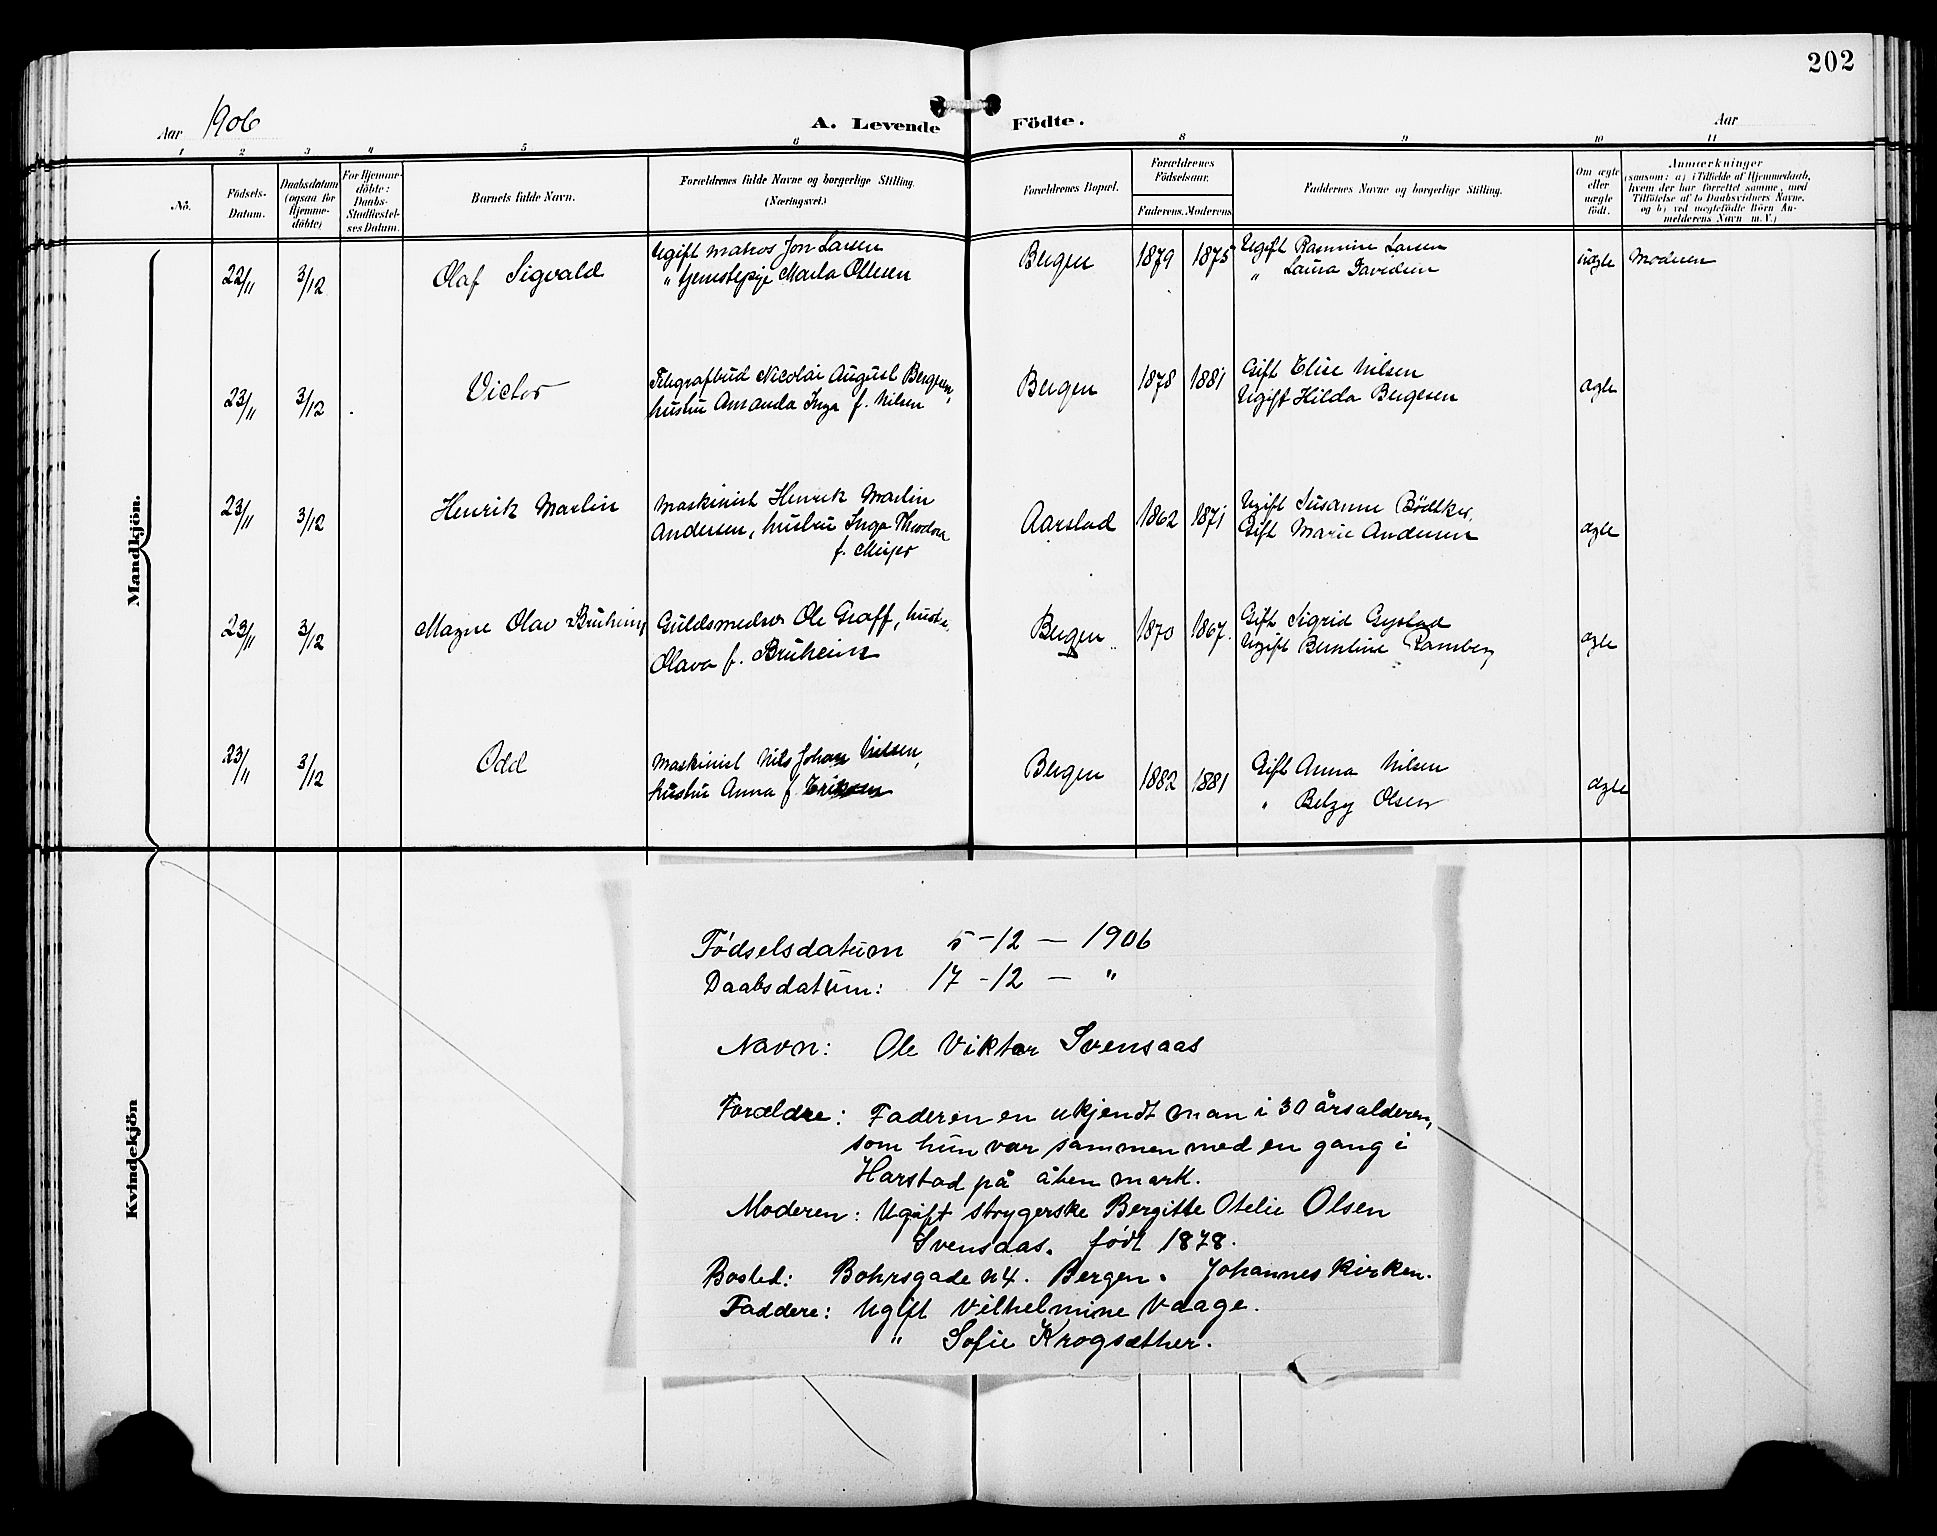 202
Aar 1906
A. Levende Födte.
Aar
1 2 3 4 5 6 8 9 10 11
No.
Födsels-
Datum.
Daabsdatum
(ogsaa for
Hjemme-
döbte)
For Hjemme-
döbte:
Daabs-
Stadfæstel-
ses Datum.
Barnets fulde Navn.
Forældrenes fulde Navne og borgerlige Stilling.
(Næringsvei.)
Forældrenes Bopæl.
Forældrenes
Födselsaar.
Faderens. Moderens
Faddernes Navne og borgerlige Stilling.
Om ægte
eller
uægte
födt.
Anmærkninger
(saasom: a) i Tilfælde af Hjemmedaab,
hvem der har forrettet samme, med
Tilföielse af to Daabsvidners Navne,
og b) ved uægtefödte Börn An-
melderens Navn m. V.)
Mandkjön.
22/11 3/12 Olaf Sigvald
Ugift matros Jon Larsen
" tjenestepige Marta Ottesen
Bergen 1879 1875
Ugift Rasmine Larsen
" Laura Davidsen
uægte Moderen
23/11 3/12 Victor
Telegrafbud Nicolai August Bergesen,
hustru Amanda Inga f. Nilsen
Bergen 1878 1881
Gift Elise Nilsen
Ugift Hilda Bergesen
ægte
23/11 3/12 Henrik Martin
Maskinist Henrik Martin
Andersen, hustru Inga Theodora
f. Meijer
Aarstad 1862 1871
Ugift Susanne Bödtker,
Gift Marie Andersen
ægte
23/11 3/12 Magne Olav Bruheim
Guldsmedsv Ole Graff, hustru
Olava f. Bruheim
Bergen 1870 1867.
Gift Sigrid Gystad
Ugift Berntine Ramberg
ægte
23/11 3/12 Odd
Maskinist Nils Johan Nielsen,
hustru Anna f. Eriksen
Bergen 1882 1881
Gift Anna Nilsen
" Betzy Olsen
ægte
Kvindekjön
Fødselsdatum 5-12 — 1906
Daabsdatum: 17-12 — "
Navn: Ole Viktor Svensaas
Forældre: Faderen en ukjendt man i 30 årsalderen,
som hun var sammen med en gang i
Harstad på åben mark.
Moderen: Ugift strygerske Bergitte Otelie Olsen
Svensaas. født 1878.
Bosted: Bohrsgade n4. Bergen. Johanneskirken.
Faddere: Ugift Vilhelmine Vaage.
" Sofie Krogsæther.